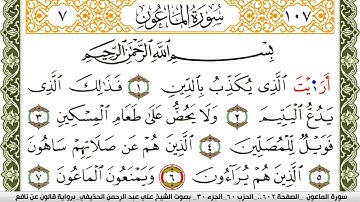 ٧ سُورَةُ الْمَاعُونِ ١٠٧
بِسْمِ اللَّهِ الرَّحْمَٰنِ الرَّحِيمِ
أَرَٰٓيْتَ الَّذِي يُكَذِّبُ بِالدِّينِ ١ فَذَٰلِكَ الَّذِي
يَدُعُّ الْيَتِيمَ ٢ وَلَا يَحُضُّ عَلَىٰ طَعَامِ الْمِسْكِينِ ٣
فَوَيْلٌ لِّلْمُصَلِّينَ ٤ الَّذِينَ هُمْ عَن صَلَاتِهِمْ سَاهُونَ ٥
الَّذِينَ هُمْ يُرَآءُونَ ٦ وَيَمْنَعُونَ الْمَاعُونَ
سورة الماعون _ الصفحة ٦٠٢ _ الحزب ٦٠ _ الجزء ٣٠ _ بصوت الشيخ علي عبد الرحمن الحذيفي _ برواية قالون عن نافع